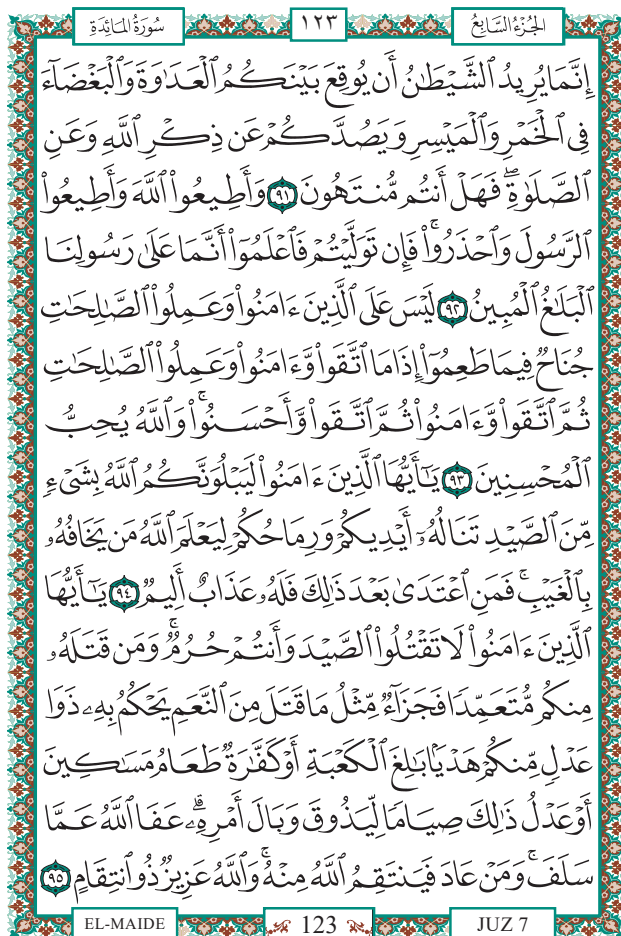 سُورَةُ المَائِدَةِ ١٢٣ الجُزْءُ السَّابِعُ
إِنَّمَا يُرِيدُ ٱلشَّيْطَٰنُ أَن يُوقِعَ بَيْنَكُمُ ٱلْعَدَٰوَةَ وَٱلْبَغْضَآءَ
فِى ٱلْخَمْرِ وَٱلْمَيْسِرِ وَيَصُدَّكُمْ عَن ذِكْرِ ٱللَّهِ وَعَنِ
ٱلصَّلَوٰةِ ۖ فَهَلْ أَنتُم مُّنتَهُونَ ٩١ وَأَطِيعُوا۟ ٱللَّهَ وَأَطِيعُوا۟
ٱلرَّسُولَ وَٱحْذَرُوا۟ ۚ فَإِن تَوَلَّيْتُمْ فَٱعْلَمُوٓا۟ أَنَّمَا عَلَىٰ رَسُولِنَا
ٱلْبَلَٰغُ ٱلْمُبِينُ ٩٢ لَيْسَ عَلَى ٱلَّذِينَ ءَامَنُوا۟ وَعَمِلُوا۟ ٱلصَّٰلِحَٰتِ
جُنَاحٌ فِيمَا طَعِمُوٓا۟ إِذَا مَا ٱتَّقَوا۟ وَّءَامَنُوا۟ وَعَمِلُوا۟ ٱلصَّٰلِحَٰتِ
ثُمَّ ٱتَّقَوا۟ وَّءَامَنُوا۟ ثُمَّ ٱتَّقَوا۟ وَّأَحْسَنُوا۟ ۗ وَٱللَّهُ يُحِبُّ
ٱلْمُحْسِنِينَ ٩٣ يَٰٓأَيُّهَا ٱلَّذِينَ ءَامَنُوا۟ لَيَبْلُوَنَّكُمُ ٱللَّهُ بِشَىْءٍ
مِّنَ ٱلصَّيْدِ تَنَالُهُۥٓ أَيْدِيكُمْ وَرِمَاحُكُمْ لِيَعْلَمَ ٱللَّهُ مَن يَخَافُهُۥ
بِٱلْغَيْبِ ۚ فَمَنِ ٱعْتَدَىٰ بَعْدَ ذَٰلِكَ فَلَهُۥ عَذَابٌ أَلِيمٌ ٩٤ يَٰٓأَيُّهَا
ٱلَّذِينَ ءَامَنُوا۟ لَا تَقْتُلُوا۟ ٱلصَّيْدَ وَأَنتُمْ حُرُمٌ ۚ وَمَن قَتَلَهُۥ
مِنكُم مُّتَعَمِّدًا فَجَزَآءٌ مِّثْلُ مَا قَتَلَ مِنَ ٱلنَّعَمِ يَحْكُمُ بِهِۦ ذَوَا
عَدْلٍ مِّنكُمْ هَدْيًۢا بَٰلِغَ ٱلْكَعْبَةِ أَوْ كَفَّٰرَةٌ طَعَامُ مَسَٰكِينَ
أَوْ عَدْلُ ذَٰلِكَ صِيَامًا لِّيَذُوقَ وَبَالَ أَمْرِهِۦ ۗ عَفَا ٱللَّهُ عَمَّا
سَلَفَ ۚ وَمَنْ عَادَ فَيَنتَقِمُ ٱللَّهُ مِنْهُ ۗ وَٱللَّهُ عَزِيزٌ ذُو ٱنتِقَامٍ ٩٥
EL-MAIDE 123 JUZ 7